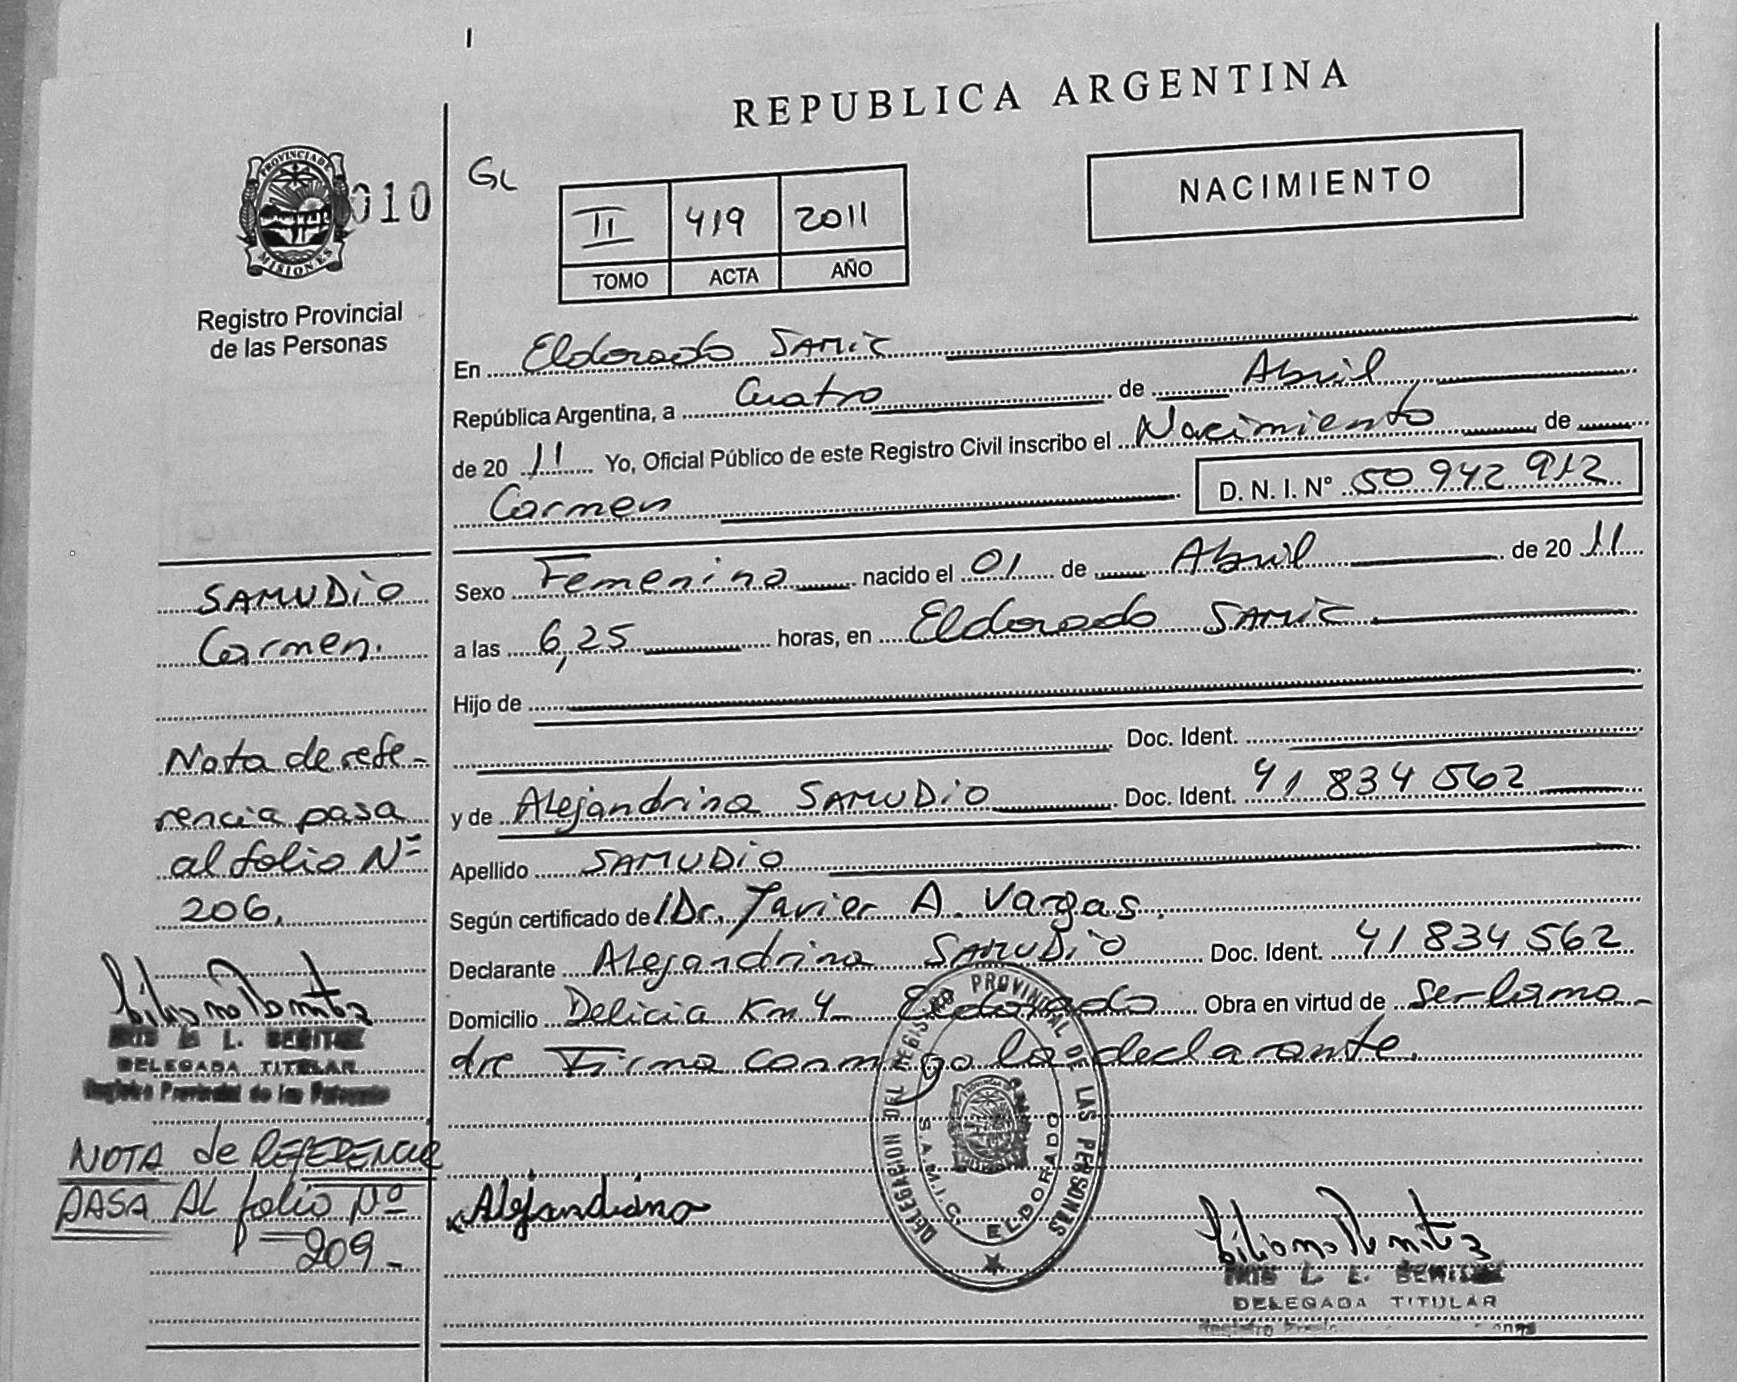 REPUBLICA ARGENTINA
PROVINCIA DE
MISIONES
010
GL
NACIMIENTO
II 419 2011
TOMO ACTA AÑO
Registro Provincial
de las Personas
En Eldorado SAMIC
República Argentina, a Cuatro de Abril
de 2011 Yo, Oficial Público de este Registro Civil inscribo el Nacimiento de
Carmen D. N. I. N° 50 942 912
Sexo Femenino nacido el 01 de Abril de 2011
a las 6,25 horas, en Eldorado SAMIC
Hijo de
Doc. Ident.
y de Alejandrina SAMUDIO Doc. Ident. 41 834 562
Apellido SAMUDIO
Según certificado de Dr. Javier A. Vargas.
Declarante Alejandrina SAMUDIO Doc. Ident. 41 834 562
Domicilio Delicia Km 4 Eldorado Obra en virtud de ser la ma-
dre Firma conmigo la declarante.
SAMUDIO
Carmen.
Nota de refe-
rencia pasa
al folio Nº
206.
L. BENITEZ
DELEGADA TITULAR
Registro Provincial de las Personas
NOTA de REFERENCIA
PASA AL folio Nº
209-
Alejandrina
DELEGACION DEL REGISTRO PROVINCIAL DE LAS PERSONAS
S.A.M.I.C. ELDORADO
L. BENITEZ
DELEGADA TITULAR
Registro